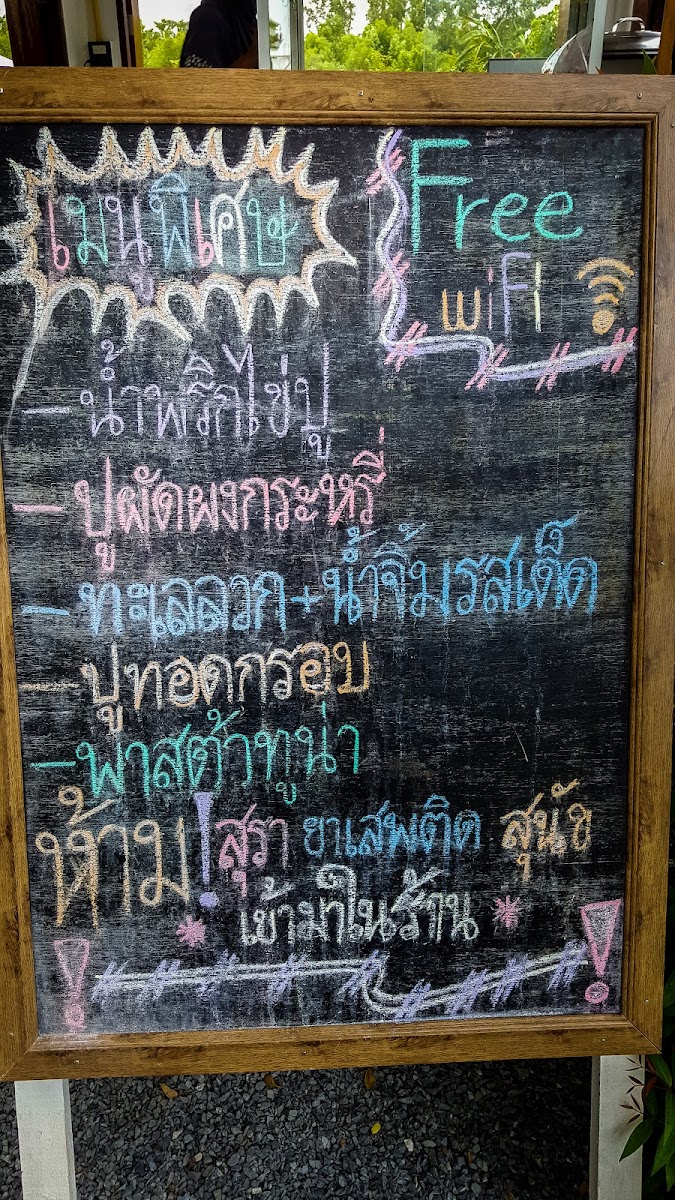 เมนูพิเศษ
Free
wiFi
- น้ำพริกไข่ปู
- ปูผัดผงกระหรี่
- ทะเลลวก+น้ำจิ้มรสเด็ด
- ปูทอดกรอบ
- พาสต้าทูน่า
ห้าม! สุรา ยาเสพติด สุนัข
เข้ามาในร้าน